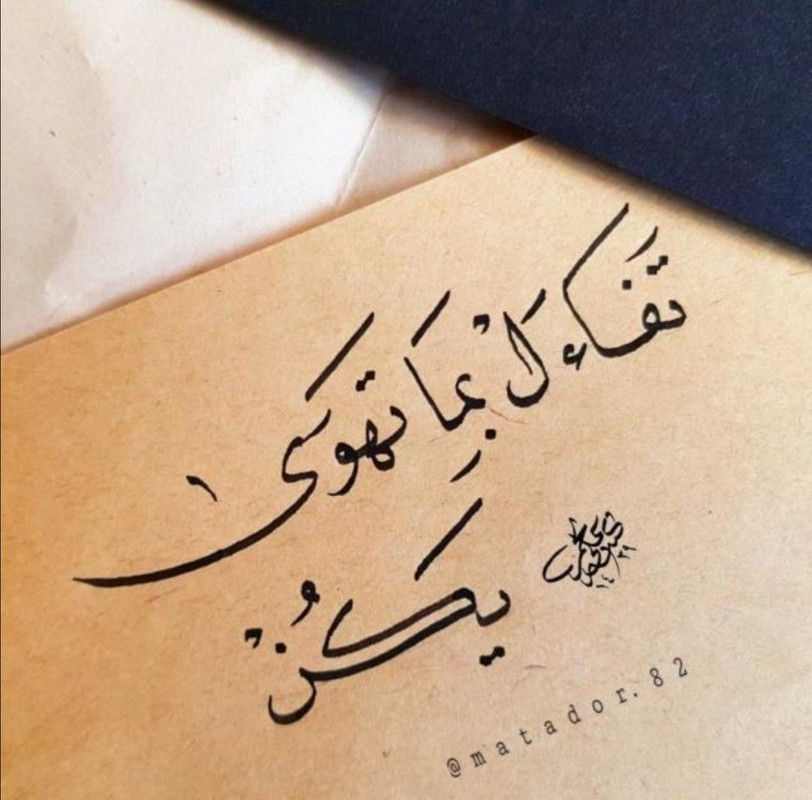 تَفَاءَلْ بِمَا تَهوَىٰ
يَكُنْ
@matador.82